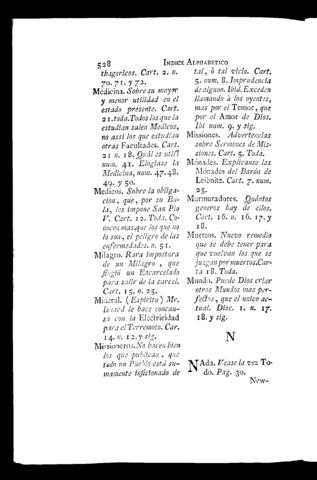 528
INDICE ALPHABETICO
thagoricos. Cart. 2. n.
70. 71. y 72.
Medicina. Sobre su mayor
y menor utilidad en el
estado presente. Cart.
21. toda. Todos los que la
estudian salen Medicos,
no assi los que estudian
otras Facultades. Cart.
21 n. 18. Quál es util?
num. 41. Elogiase la
Medicina, num. 47. 48.
49. y 50.
Medicos. Sobre la obliga-
cion, que, por su Bu-
la, les impone San Pio
V. Cart. 12. Toda. Co-
nocen mas, que los que no
lo son, el peligro de las
enfermedades. n. 51.
Milagro. Rara impostura
de un Milagro, que
fingió un Encarcelado
para salir de la carcel.
Cart. 15. n. 25.
Mineral. (Espiritu) Mr.
le hace concau-
sa con la Electricidad
para el Terremoto. Car.
14. n. 12. y sig.
Missioneros. No hacen bien
los que publican, que
todo un Pueblo está su-
mamente inficionado de
tal, ò tal vicio. Cart.
5. num. 8. Imprudencia
de alguno. Ibid. Exceden
llamando à los oyentes,
mas por el Temor, que
por el Amor de Dios.
Ibi num. 9. y sig.
Missiones. Advertencias
sobre Sermones de Mis-
siones. Cart. 5. Toda.
Mónades. Explicanse las
Mónades del Barón de
Leibnitz. Cart. 7. num.
25.
Murmuradores. Quántos
generos hay de ellos.
Cart. 16. n. 16. 17. y
18.
Muertos. Nuevo remedio
que se debe tener para
que vuelvan los que se
juzgan por muertos. Car-
ta 18. Toda.
Mundo. Puede Dios criar
otros Mundos mas per-
fectos, que el unico ac-
tual. Disc. 1. n. 17.
18. y sig.
N
NAda. Vease la voz To-
do. Pag. 30.
New-